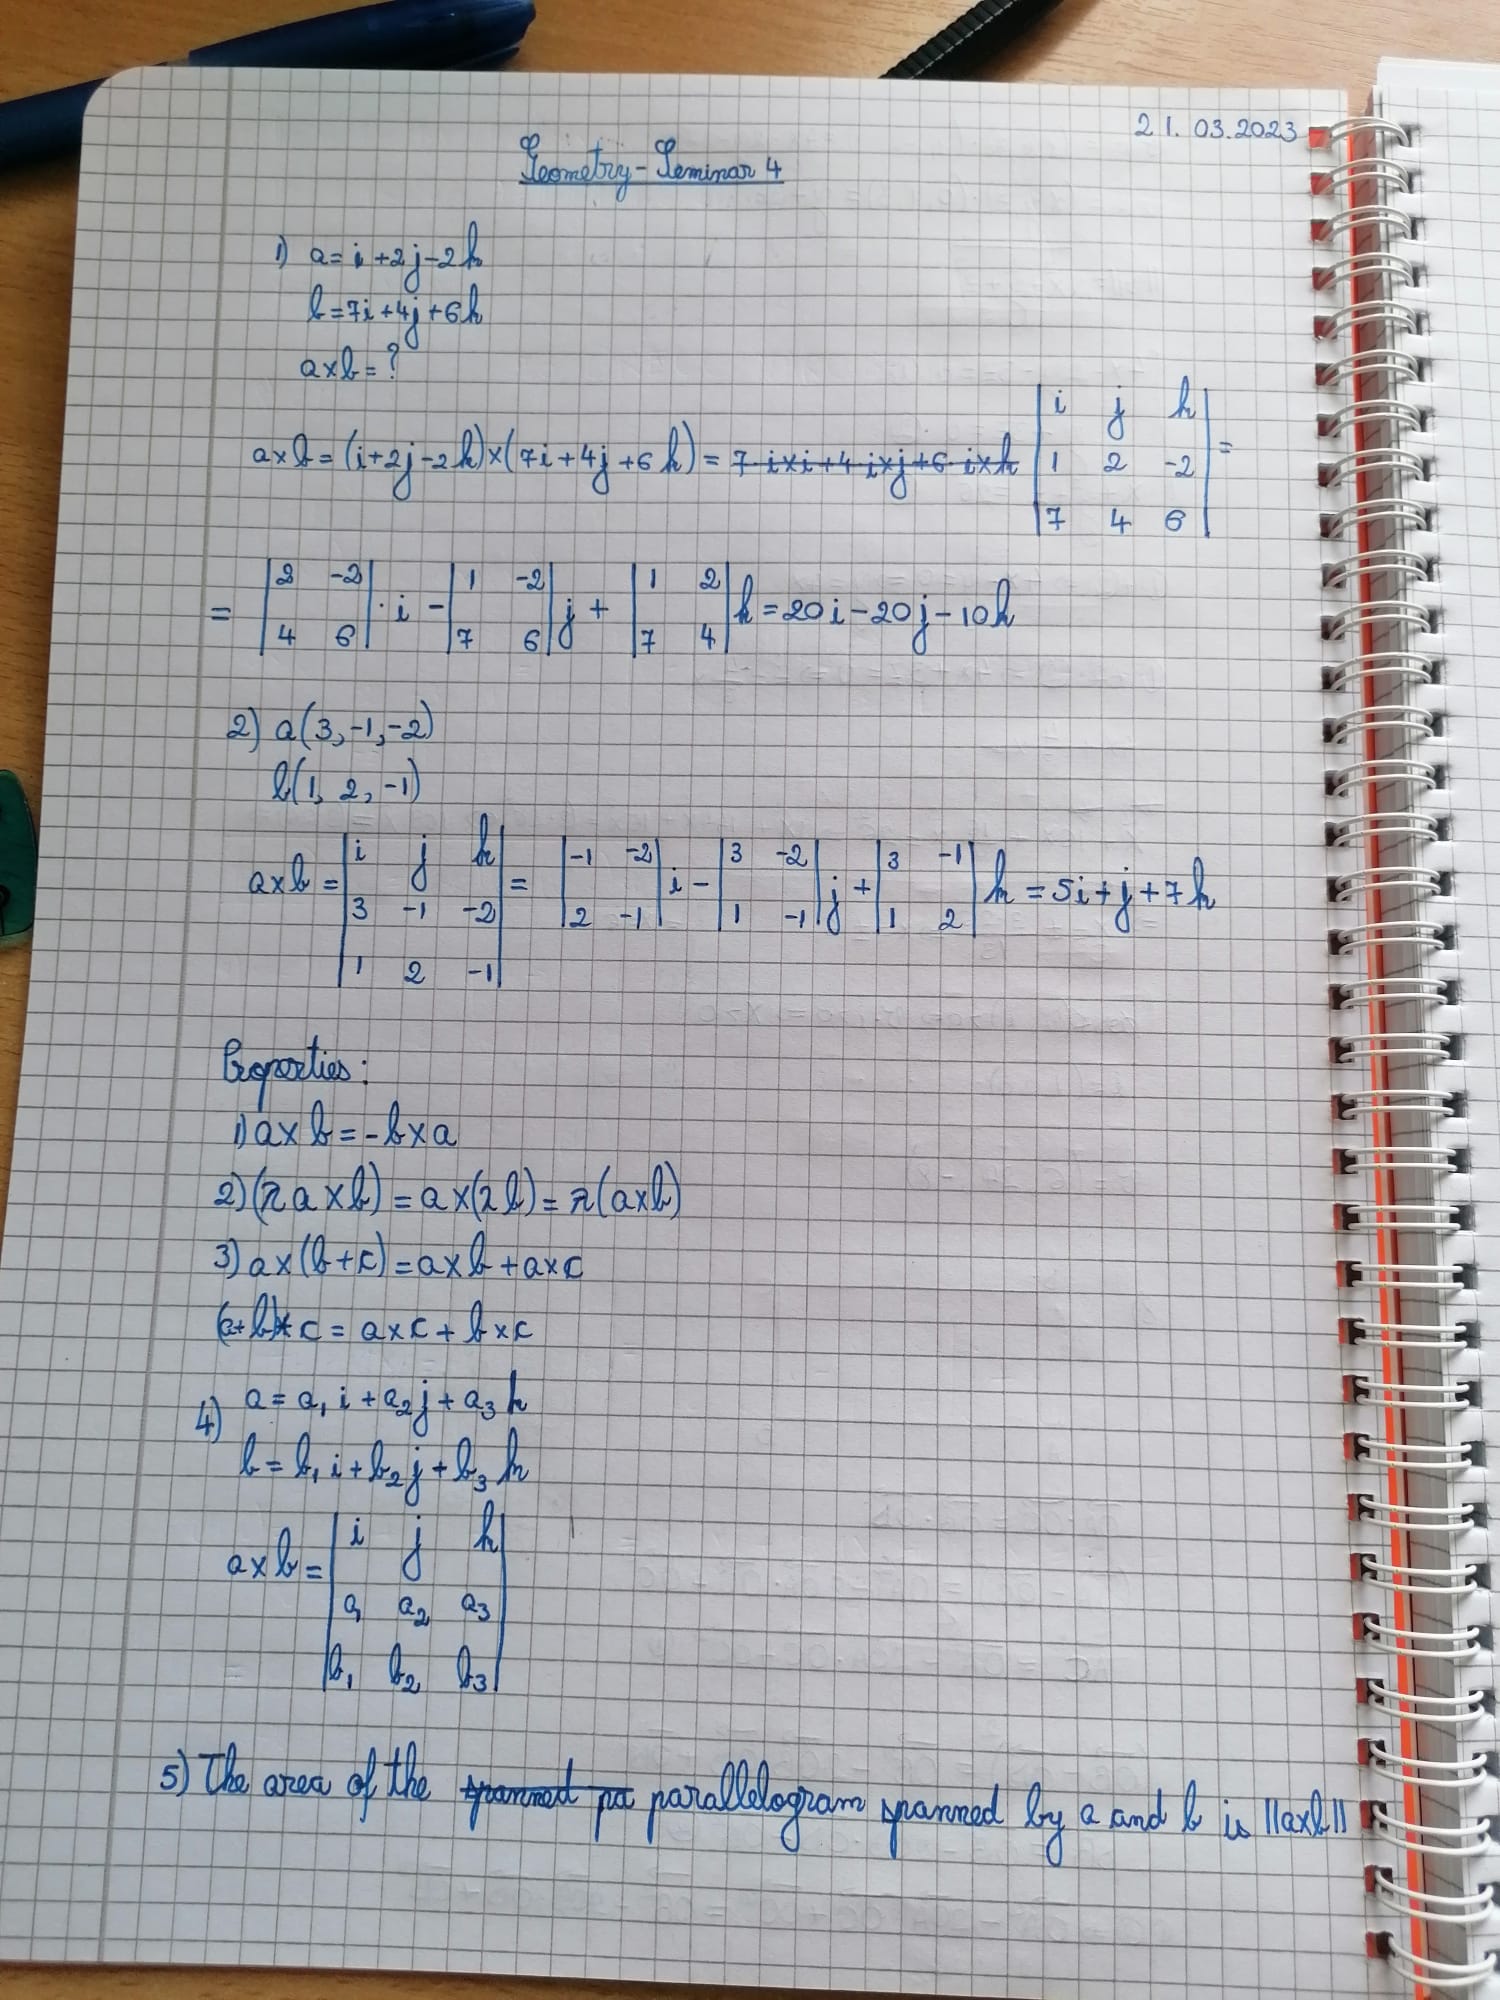 21.03.2023
Geometry - Seminar 4
1) a = i + 2j - 2k
b = 7i + 4j + 6k
a×b = ?
a×b = (i + 2j - 2k)×(7i + 4j + 6k) = 7·i×i + 4·i×j + 6·i×k | i j k |
| 1 2 -2 | =
| 7 4 6 |
= | 2 -2 | · i - | 1 -2 | j + | 1 2 | k = 20i - 20j - 10k
| 4 6 | | 7 6 | | 7 4 |
2) a(3, -1, -2)
b(1, 2, -1)
a×b = | i j k | = | -1 -2 | i - | 3 -2 | j + | 3 -1 | k = 5i + j + 7k
| 3 -1 -2 | | 2 -1 | | 1 -1 | | 1 2 |
| 1 2 -1 |
Properties:
1) a×b = -b×a
2) (λa×b) = a×(λb) = λ(a×b)
3) a×(b+c) = a×b + a×c
(a+b)×c = a×c + b×c
4) a = a₁i + a₂j + a₃k
b = b₁i + b₂j + b₃k
a×b = | i j k |
| a₁ a₂ a₃ |
| b₁ b₂ b₃ |
5) The area of the spanned pa parallelogram spanned by a and b is ||a×b||